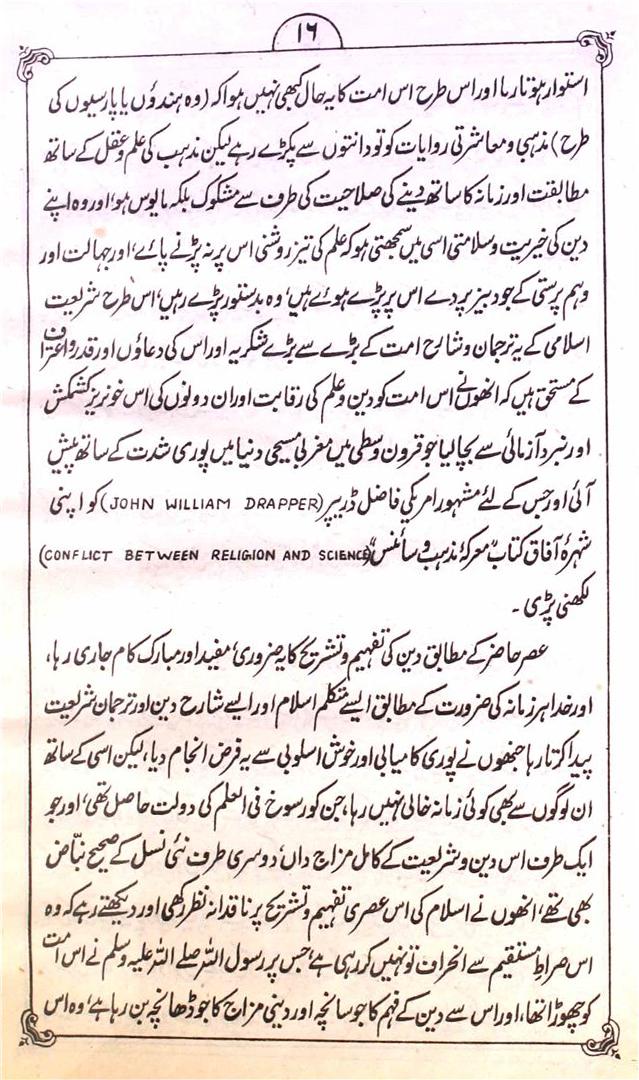 ۱۶
استوار ہوتا رہا اور اس طرح اس امت کا یہ حال کبھی نہیں ہوا کہ (وہ ہندوؤں یا پارسیوں کی
طرح) مذہبی و معاشرتی روایات کو تو دانتوں سے پکڑے رہے لیکن مذہب کی علم و عقل کے ساتھ
مطابقت اور زمانہ کا ساتھ دینے کی صلاحیت کی طرف سے مشکوک بلکہ مایوس ہو، اور وہ اپنے
دین کی خیریت و سلامتی اسی میں سمجھتی ہو کہ علم کی تیز روشنی اس پر نہ پڑنے پائے، اور جہالت اور
وہم پرستی کے جو دبیز پردے اس پر پڑے ہوئے ہیں، وہ بدستور پڑے رہیں، اس طرح شریعت
اسلامی کے یہ ترجمان و شارح امت کے بڑے سے بڑے شکریہ اور اس کی دعاؤں اور قدر و اعتراف
کے مستحق ہیں کہ انھوں نے اس امت کو دین و علم کی رقابت اور ان دونوں کی اس خونریز کشمکش
اور نبرد آزمائی سے بچا لیا جو قرون وسطی میں مغربی مسیحی دنیا میں پوری شدت کے ساتھ پیش
آئی اور جس کے لئے مشہور امریکی فاضل ڈریپر (JOHN WILLIAM DRAPPER) کو اپنی
شہرۂ آفاق کتاب "معرکۂ مذہب و سائنس" (CONFLICT BETWEEN RELIGION AND SCIENCE)
لکھنی پڑی۔
عصر حاضر کے مطابق دین کی تفہیم و تشریح کا یہ ضروری، مفید اور مبارک کام جاری رہا،
اور خدا ہر زمانہ کی ضرورت کے مطابق ایسے متکلم اسلام اور ایسے شارح دین اور ترجمان شریعت
پیدا کرتا رہا جنھوں نے پوری کامیابی اور خوش اسلوبی سے یہ فرض انجام دیا، لیکن اسی کے ساتھ
ان لوگوں سے بھی کوئی زمانہ خالی نہیں رہا، جن کو رسوخ فی العلم کی دولت حاصل تھی، اور جو
ایک طرف اس دین و شریعت کے کامل مزاج داں، دوسری طرف نئی نسل کے صحیح نبّاض
بھی تھے، انھوں نے اسلام کی اس عصری تفہیم و تشریح پر ناقدانہ نظر رکھی اور دیکھتے رہے کہ وہ
اس صراط مستقیم سے انحراف تو نہیں کر رہی ہے، جس پر رسول اللہ صلے اللہ علیہ وسلم نے اس امت
کو چھوڑا تھا، اور اس سے دین کے فہم کا جو سانچہ اور دینی مزاج کا جو ڈھانچہ بن رہا ہے، وہ اس